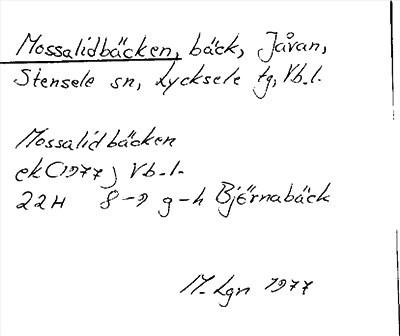 Mossalidbäcken, bäck, Jåvan,
Stensele sn, Lycksele tg, Vb.l.
Mossalidbäcken
ek (1977) Vb.l.
22H 8-9 g-h Björnabäck
M. Lgn 1977